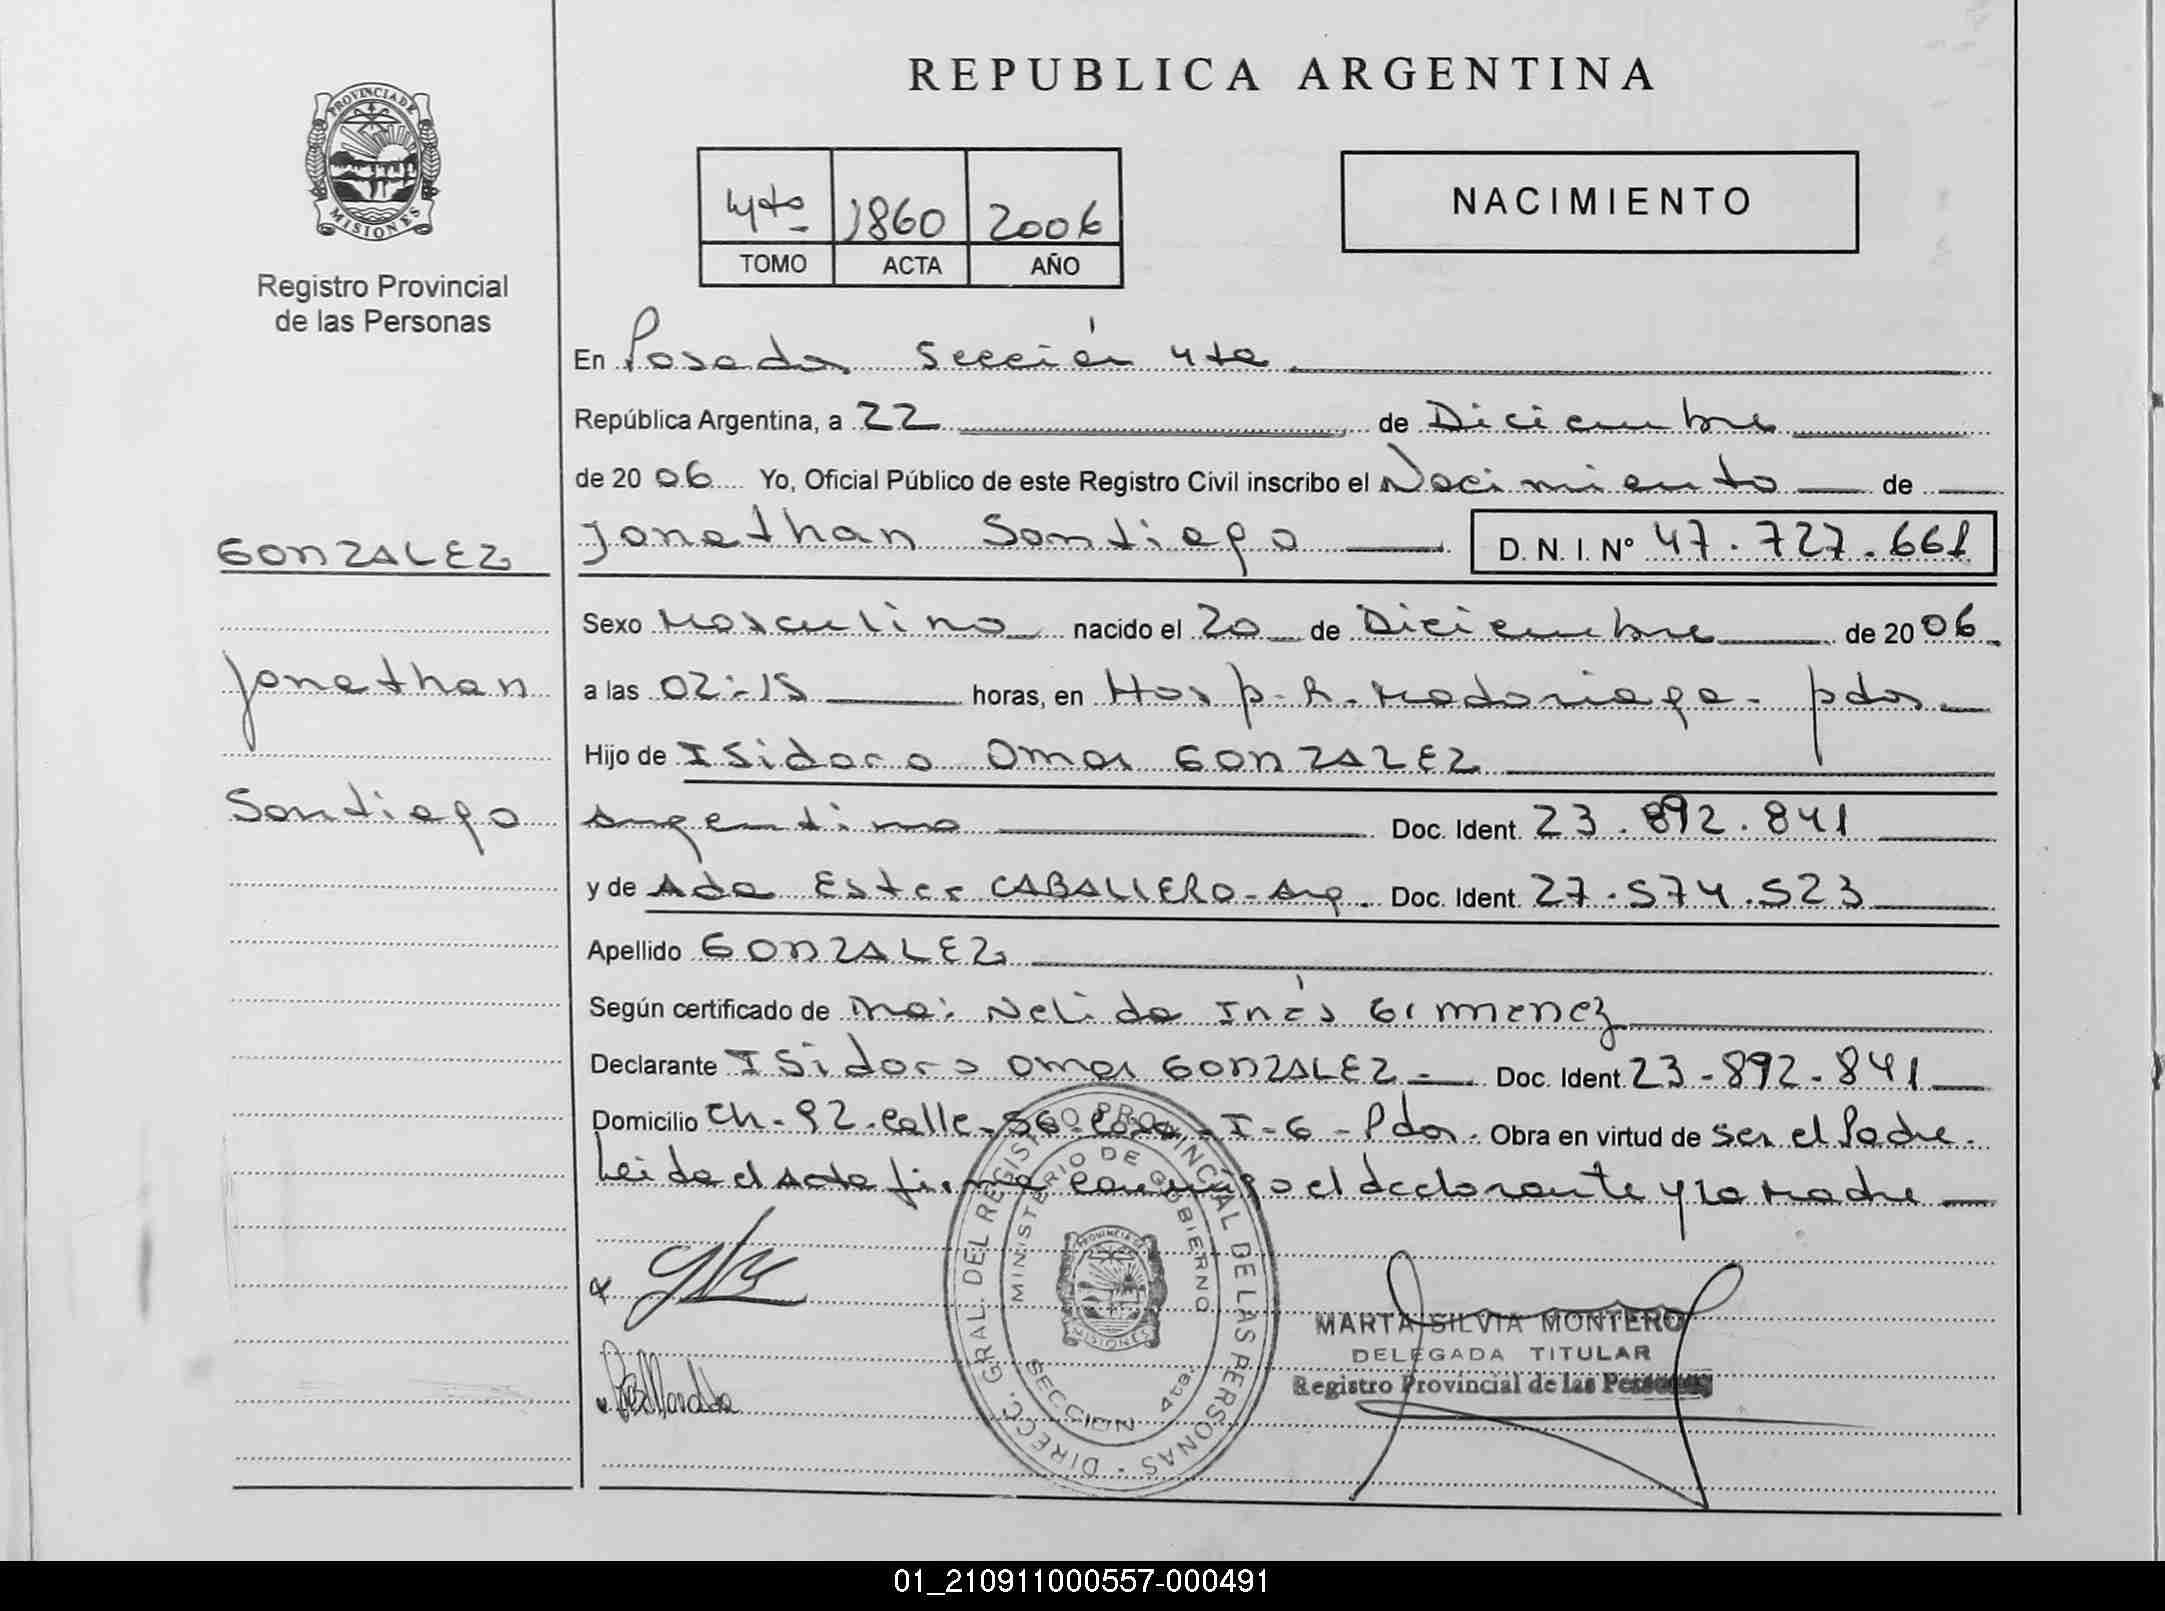 REPUBLICA ARGENTINA
PROVINCIA DE MISIONES
Registro Provincial
de las Personas
4to 1860 2006
TOMO ACTA AÑO
NACIMIENTO
En Posadas Sección 4ta
República Argentina, a 22 de Diciembre
de 2006 Yo, Oficial Público de este Registro Civil inscribo el Nacimiento de
GONZALEZ
Jonathan
Santiago
Jonathan Santiago D. N. I. Nº 47.727.661
Sexo Masculino nacido el 20 de Diciembre de 2006
a las 02:15 horas, en Hosp. R. Madariaga - Pdas
Hijo de Isidoro Omar GONZALEZ
Argentino Doc. Ident. 23.892.841
y de Ada Ester CABALLERO - Arg. Doc. Ident. 27.574.523
Apellido GONZALEZ
Según certificado de Nelida Inés Gimenez
Declarante Isidoro Omar GONZALEZ - Doc. Ident. 23-892-841
Domicilio Ch - 92 - Calle - 56 - Casa - I - 6 - Pdas. Obra en virtud de ser el Padre.
Leida el Acta firma conmigo el declarante y la madre
DIRECC. GRAL. DEL REGISTRO PROVINCIAL DE LAS PERSONAS
MINISTERIO DE GOBIERNO
PROVINCIA DE MISIONES
SECCION 4ta.
MARTA SILVIA MONTERO
DELEGADA TITULAR
Registro Provincial de las Personas
01_210911000557-000491